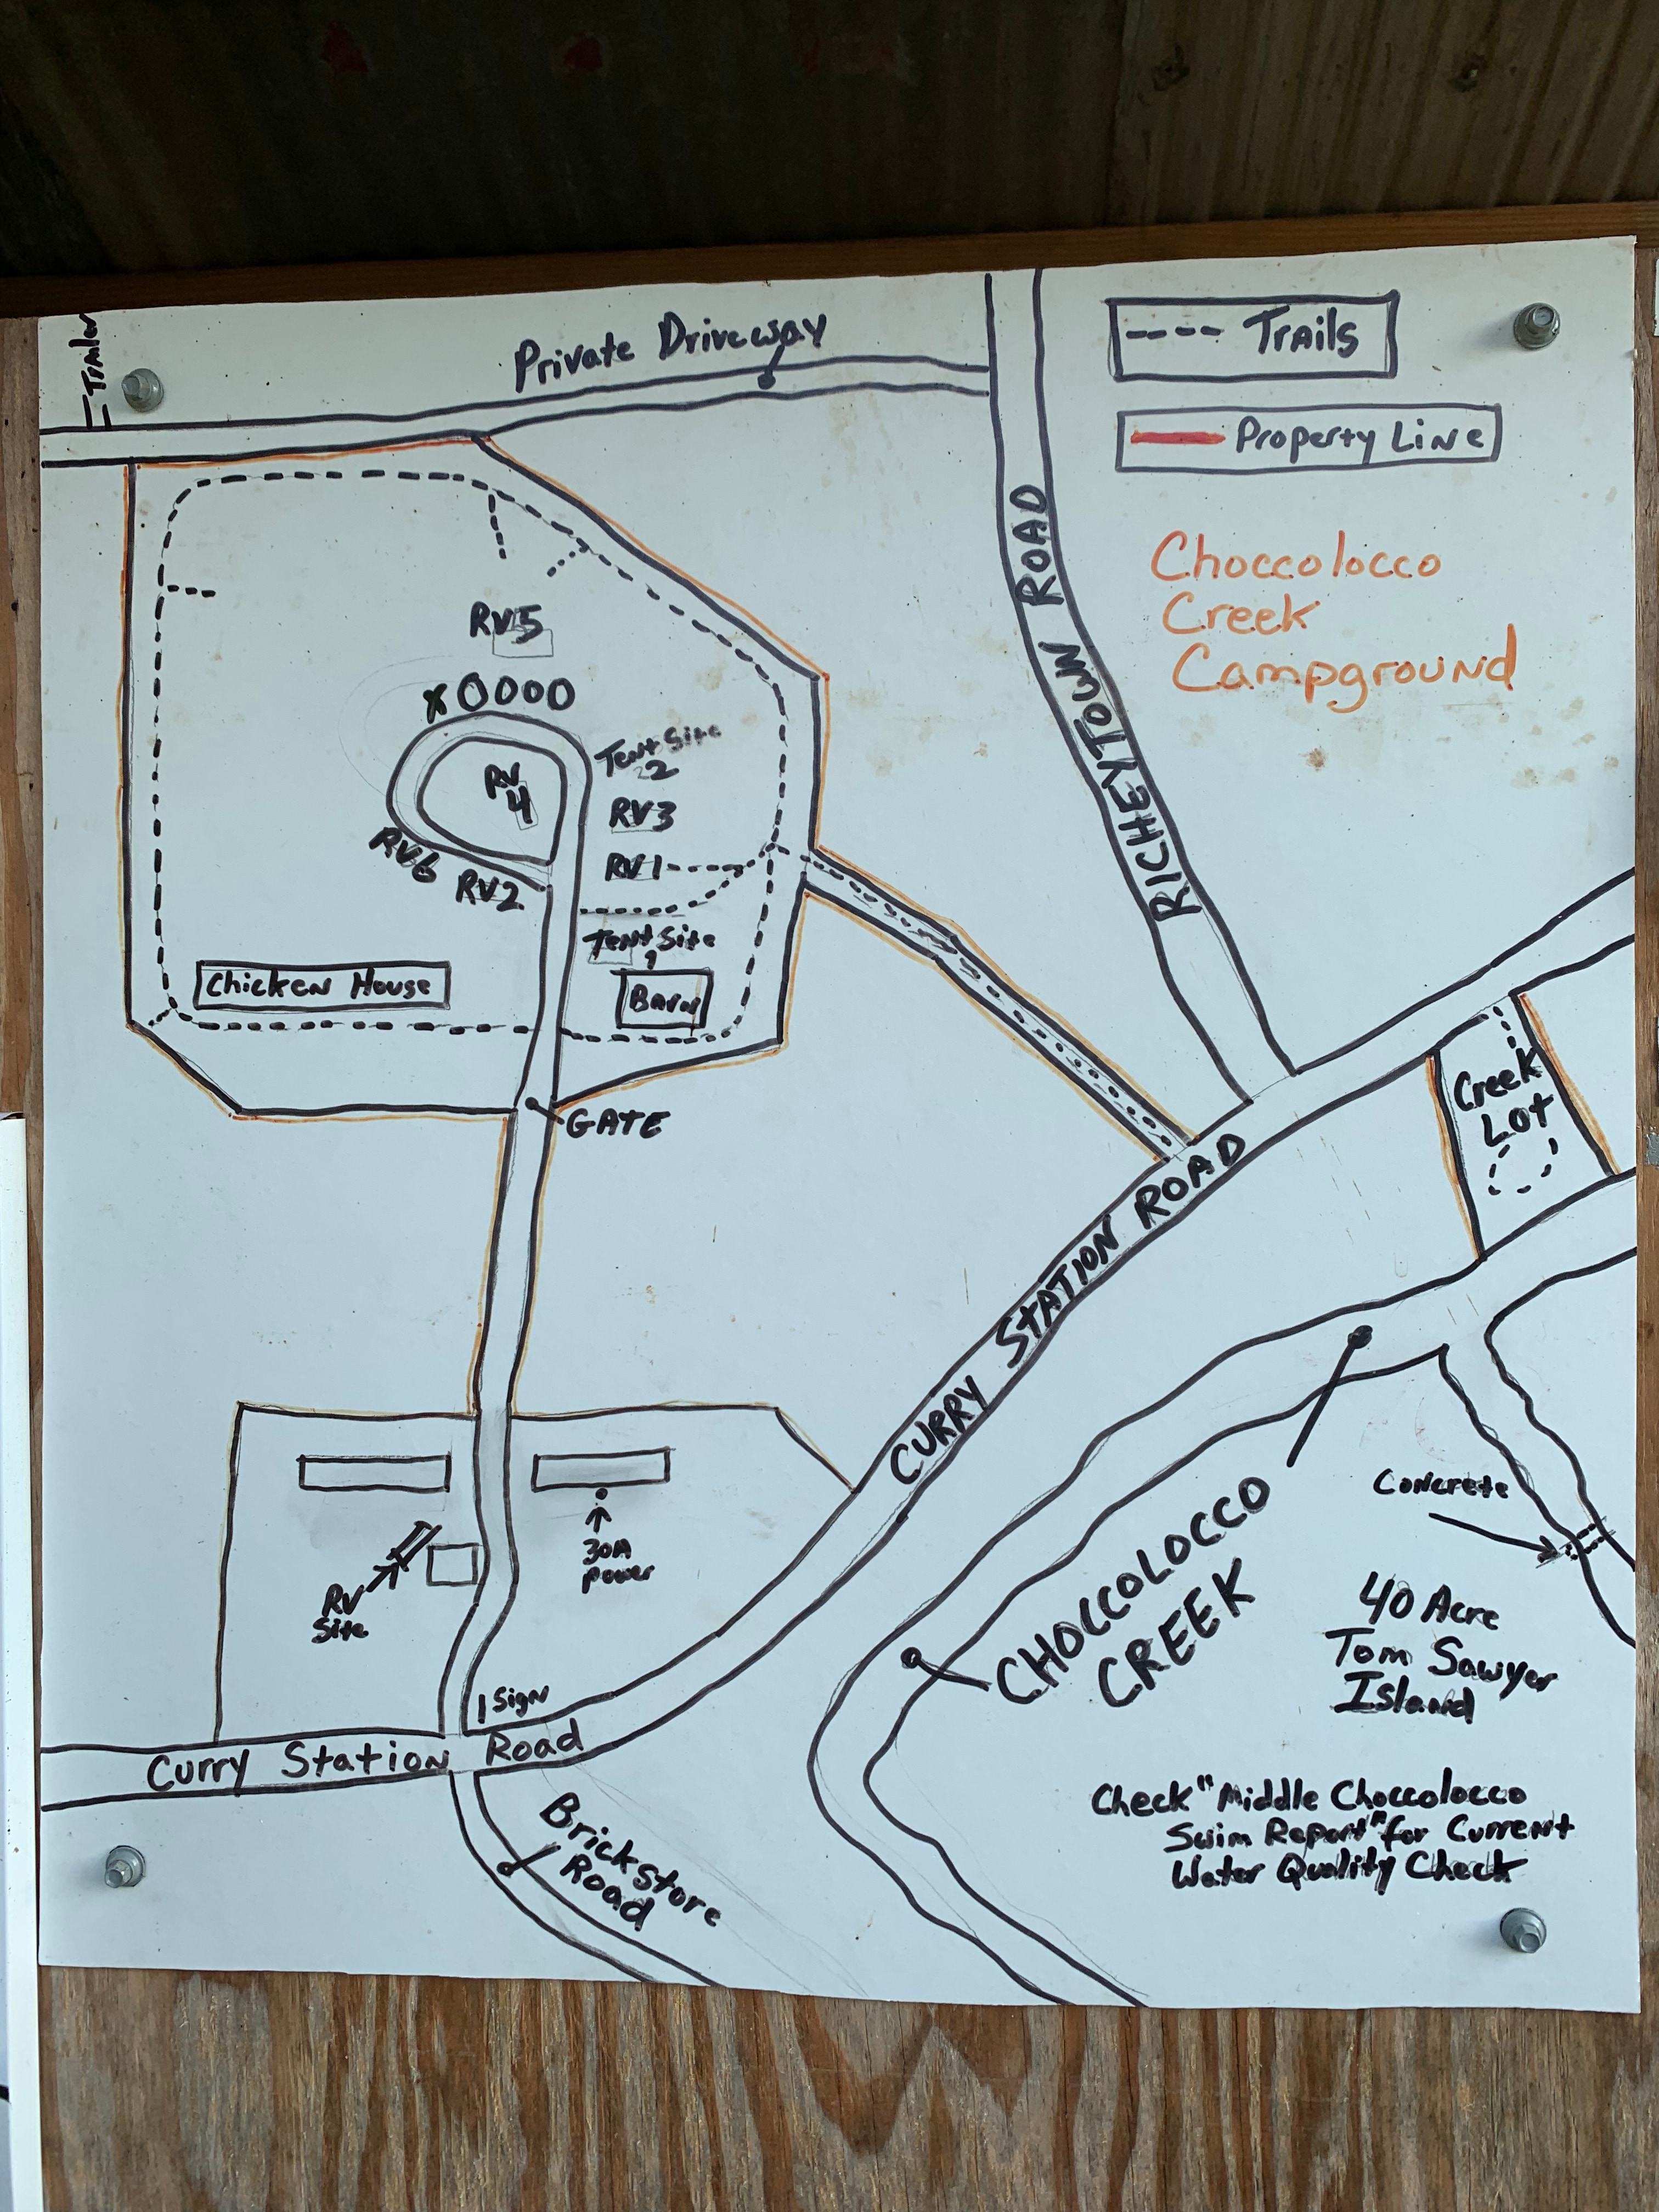 Trailer
Private Driveway
---- Trails
Property Line
Choccolocco
Creek
Campground
RICHEYTOWN ROAD
RV5
X0000
Tent Site
2
RV
4
RV3
RV6
RV2
RV1
Tent Site
1
Chicken House
Barn
GATE
Creek
Lot
CURRY STATION ROAD
30A
Power
RV
Site
Concrete
CHOCCOLOCCO
CREEK
40 Acre
Tom Sawyer
Island
Sign
Curry Station Road
Brickstore
Road
Check "Middle Choccolocco
Swim Report" for Current
Water Quality Check